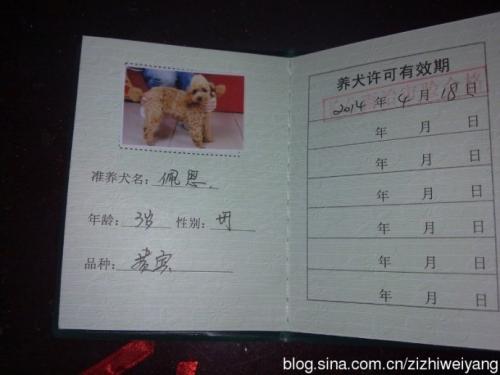 准养犬名：佩恩
年龄：3岁 性别：
品种：贵宾
养犬许可有效期
2014 年 4 月 18 日
年 月 日
年 月 日
年 月 日
年 月 日
年 月 日
年 月 日
blog.sina.com.cn/zizhiweiyang